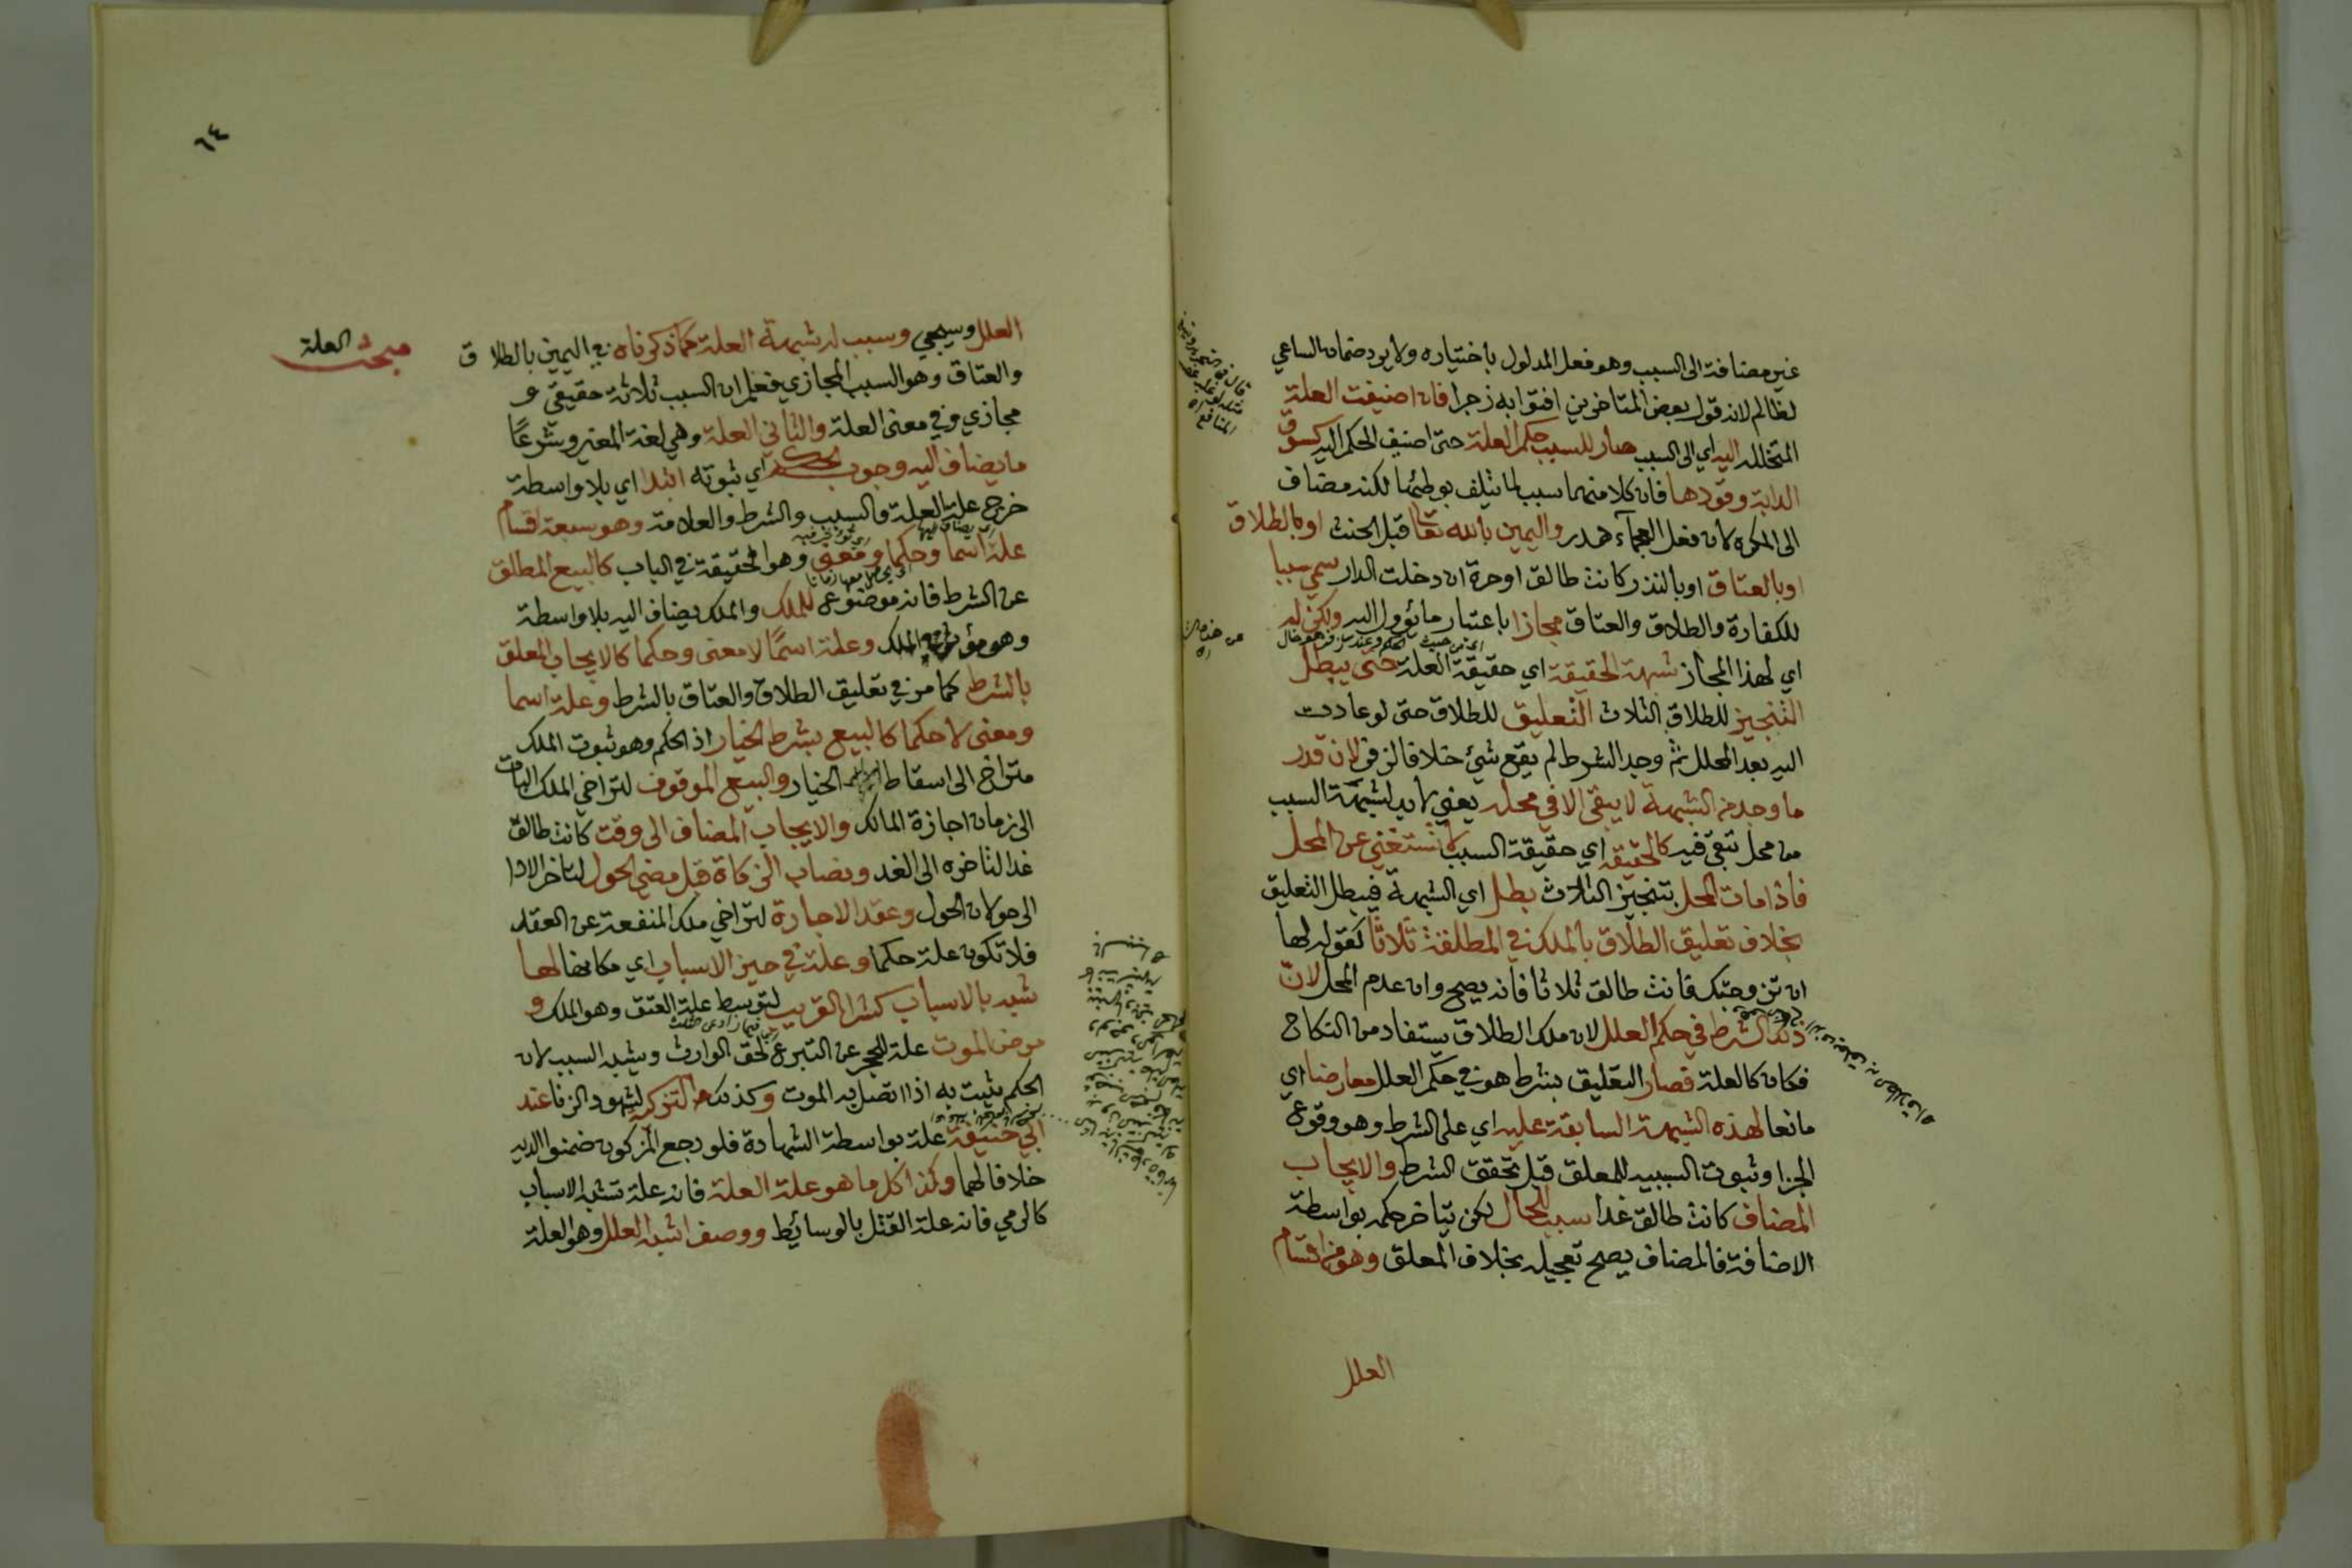 غير مضافة الى السبب وهو فعل المدلول باختياره ولا يرد ضمان الساعي
لظالم لانه قول بعض المتاخرين افتوا به زجرا فان اضيفت العلة
المتخللة اليه اي الى السبب صار للسبب حكم العلة حتى اضيف الحكم اليه كسوق
الدابة وقودها فان كلا منهما سبب لما يتلف بوطئها لكنه مضاف
الى المكره لان فعل العجماء هدر واليمين بالله تعالى قبل الحنث او بالطلاق
او بالعتاق او بالنذر كانت طالق او حرة ان دخلت الدار سمي سببا
للكفارة والطلاق والعتاق مجازا باعتبار ما يؤول اليه ولكن له
اي لهذا المجاز شبهة الحقيقة اي حقيقة العلة حتى يبطل
التنجيز للطلاق الثلاث التعليق للطلاق حتى لو عادت
اليه بعد المحلل ثم وجد الشرط لم يقع شيء خلافا لزفر لان قدر
ما وجد من الشبهة لا يبقى الا في محله يعني لا بد لشبهة السبب
من محل تبقى فيه كالحقيقة اي حقيقة السبب لا تستغني عن المحل
فاذا مات المحل بتنجيز الثلاث بطل اي الشبهة فيبطل التعليق
بخلاف تعليق الطلاق بالملك في المطلقة ثلاثا كقوله لها
ان تزوجتك فانت طالق ثلاثا فانه يصح وان عدم المحل لان
ذلك الشرط في حكم العلل لان ملك الطلاق يستفاد من النكاح
فكان كالعلة فصار التعليق بشرط هو في حكم العلل معارضا اي
مانعا لهذه الشبهة السابقة عليه اي على الشرط وهو وقوع
الجزا وثبوت السببيه للمعلق قبل تحقق الشرط والايجاب
المضاف كانت طالق غدا سبب للحال لكن يتاخر حكمه بواسطة
الاضافة فالمضاف يصح تعجيله بخلاف المعلق وهو من اقسام
العلل
٦٤
مبحث العلة
العلل وسيجي وسبب له شبهة العلة كما ذكرناه في اليمين بالطلاق
والعتاق وهو السبب المجازي فعلم ان السبب ثلاثة حقيقي و
مجازي وفي معنى العلة والثاني العلة وهي لغة المغير وشرعا
ما يضاف اليه وجوب الحكم اي ثبوته ابتدا اي بلا واسطة
خرج علة العلة والسبب والشرط والعلامة وهو سبعة اقسام
علة اسما وحكما ومعنى وهو الحقيقة في الباب كالبيع المطلق
عن الشرط فانه موضوع للملك والملك يضاف اليه بلا واسطة
وهو مؤثر في الملك وعلة اسما لا معنى وحكما كالايجاب المعلق
بالشرط كما مر في تعليق الطلاق والعتاق بالشرط وعلة اسما
ومعنى لا حكما كالبيع بشرط الخيار اذ الحكم وهو ثبوت الملك
متراخ الى اسقاط الخيار والبيع الموقوف لتراخي الملك البات
الى زمان اجازة المالك والايجاب المضاف الى وقت كانت طالق
غدا لتاخره الى الغد ونصاب الزكاة قبل مضي الحول لتاخر الادا
الى حولان الحول وعقد الاجارة لتراخي ملك المنفعة عن العقد
فلا تكون علة حكما وعلة في حيز الاسباب اي مكانها لها
شبه بالاسباب كشرا القريب لتوسط علة العتق وهو الملك و
مرض الموت علة للحجر عن التبرع لحق الوارث ويشبه السبب لان
الحكم يثبت به اذا اتصل به الموت وكذلك التزكية لشهود الزنا عند
ابي حنيفة علة بواسطة الشهادة فلو رجع المزكون ضمنوا الديه
خلافا لهما وكذا كل ما هو علة العلة فانه علة تشبه الاسباب
كالرمي فانه علة القتل بالوسائط ووصف اشبه العلل وهو العلة